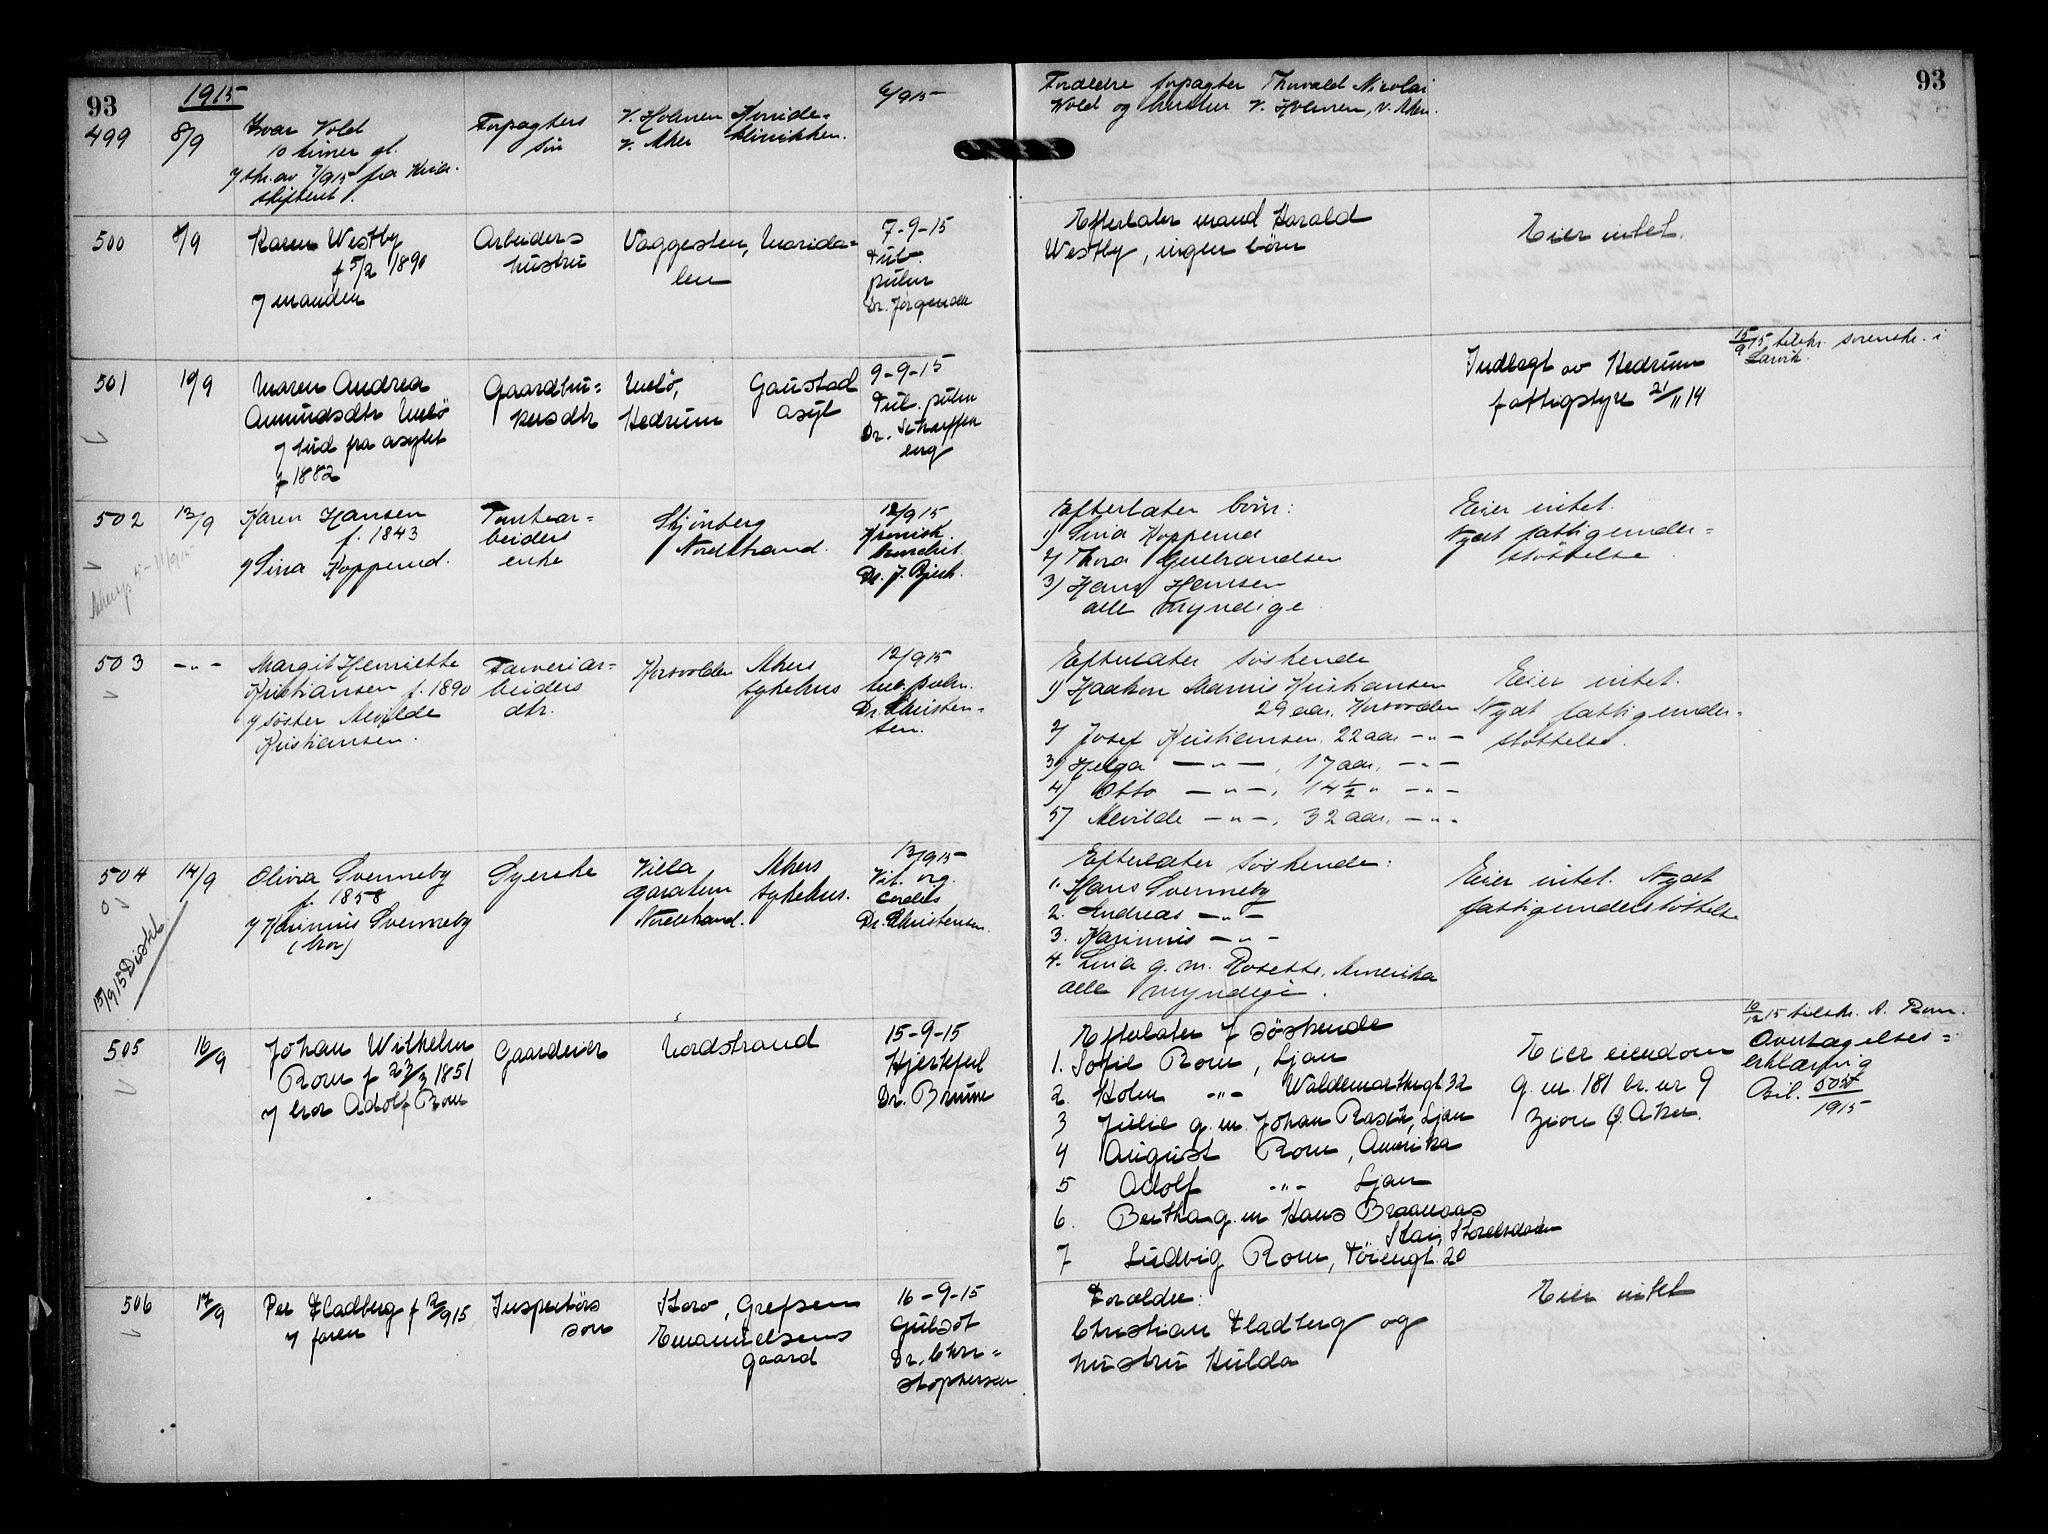 93
1915
93
499
8/9
Ivar Vold
10 timer gl.
Forpagters
søn
V. Holmen
V. Aker
Kvinde-
klinikken.
6/9 15
Forældre forpagter Thorvald Nicolai
Vold og hustru V. Holmen, V. Aker.
500
8/9
Karen Westby
f 5/2 1890
manden
Arbeiders
hustru
Vaggesten, Marida-
len
7-9-15
Tub.
pulm
Dr. Jørgensen
Efterlater mand Harald
Westby, ingen børn
Eier intet.
501
10/9
Maren Andrea
Amundsdtr Melø
fra asylet
f 1882
Gaardbru-
kersdtr
Melø,
Hedrum
Gaustad
asyl
9-9-15
Tub. pulm
Dr. Scharffen
berg
Indlagt av Hedrum
fattigstyre 21/11 14
15/9 15 tilskr. sorenskr. i
Larvik.
502
13/9
Karen Hansen
f. 1843
Sina Kopperud.
Tomtear-
beiders
enke
Skjønberg
Nordstrand.
12/9 15
Kronisk
Dr. J. Bjerk.
Efterlater børn:
1) Sina Kopperud
2) Thora Gulbrandsen
3) Hans Hansen
alle myndige.
Eier intet.
Nydt fattigunder-
støttelse.
503
-"-
Margit Henriette
Kristiansen f. 1890
søster Alvilde
Kristiansen.
Farveriar-
beiders
dtr.
Korsvolden
Akers
sykehus
12/9 15
tub. pulm.
Dr. Christen-
sen.
Efterlater søskende
1) Haakon Marius Kristiansen
29 aar, Korsvolden
2) Josef Kristiansen 22 aar -"-
3) Helga -"-, 17 aar, -"-
4) Otto -"-, 14 1/2 " -"-
5) Alvilde -"-, 32 aar, -"-
Eier intet.
Nydt fattigunder-
støttelse.
504
14/9
Olivia Svenneby
f. 1858
Karinius Svenneby
(bror)
15/9 15
Syerske
Villa
Nordstrand.
Akers
sykehus.
13/9 15
Vit. org.
cordis
Dr. Christensen.
Efterlater søskende:
1. Hans Svenneby
2. Andreas -"-
3. Karinius -"-
4. Lina g. m. Rosette, Amerika
alle myndige.
Eier intet. Nydt
fattigunderstøttelse
505
16/9
Johan Wilhelm
Rom f 23/3 1851
bror Adolf Rom
Gaardeier
Nordstrand
15-9-15
Hjertefeil
Dr. Bruun
Efterlater 7 søskende
1. Sofie Rom, Ljan
2. Holm -"- Waldemar Thrsgt 32
3 Julie g. m. Johan Rasch, Ljan
4 August Rom, Amerika
5 Adolf -"- Ljan
6. Bertha g. m Hans Braanaas
7 Ludvig Rom, Tøiengt. 20
Eier eiendom
g. nr. 181 br. nr 9
Zion Ø. Aker.
10/12 15 tilskr. A. Rom.
Overtagelses-
erklæring
Bil. 505/1915
506
17/9
Per Fladberg f 12/9 15
faren
Inspektørs
søn
Storo, Grefsen
Emanuelsens
gaard
16-9-15
Gulsot
Dr. Chri-
stophersen
Forældre:
Christian Fladberg og
hustru Hulda
Eier intet